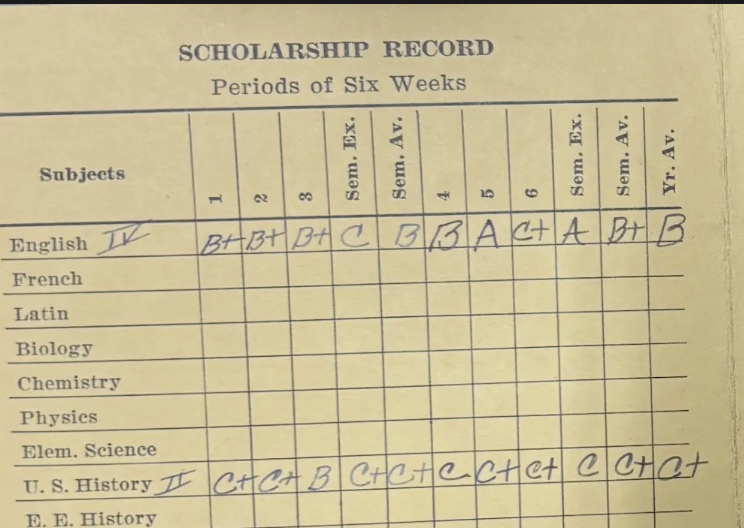 SCHOLARSHIP RECORD
Periods of Six Weeks
Subjects 1 2 3 Sem. Ex. Sem. Av. 4 5 6 Sem. Ex. Sem. Av. Yr. Av.
English IV B+ B+ B+ C B B A C+ A B+ B
French
Latin
Biology
Chemistry
Physics
Elem. Science
U. S. History II C+ C+ B C+ C+ C C+ C+ C C+ C+
E. E. History